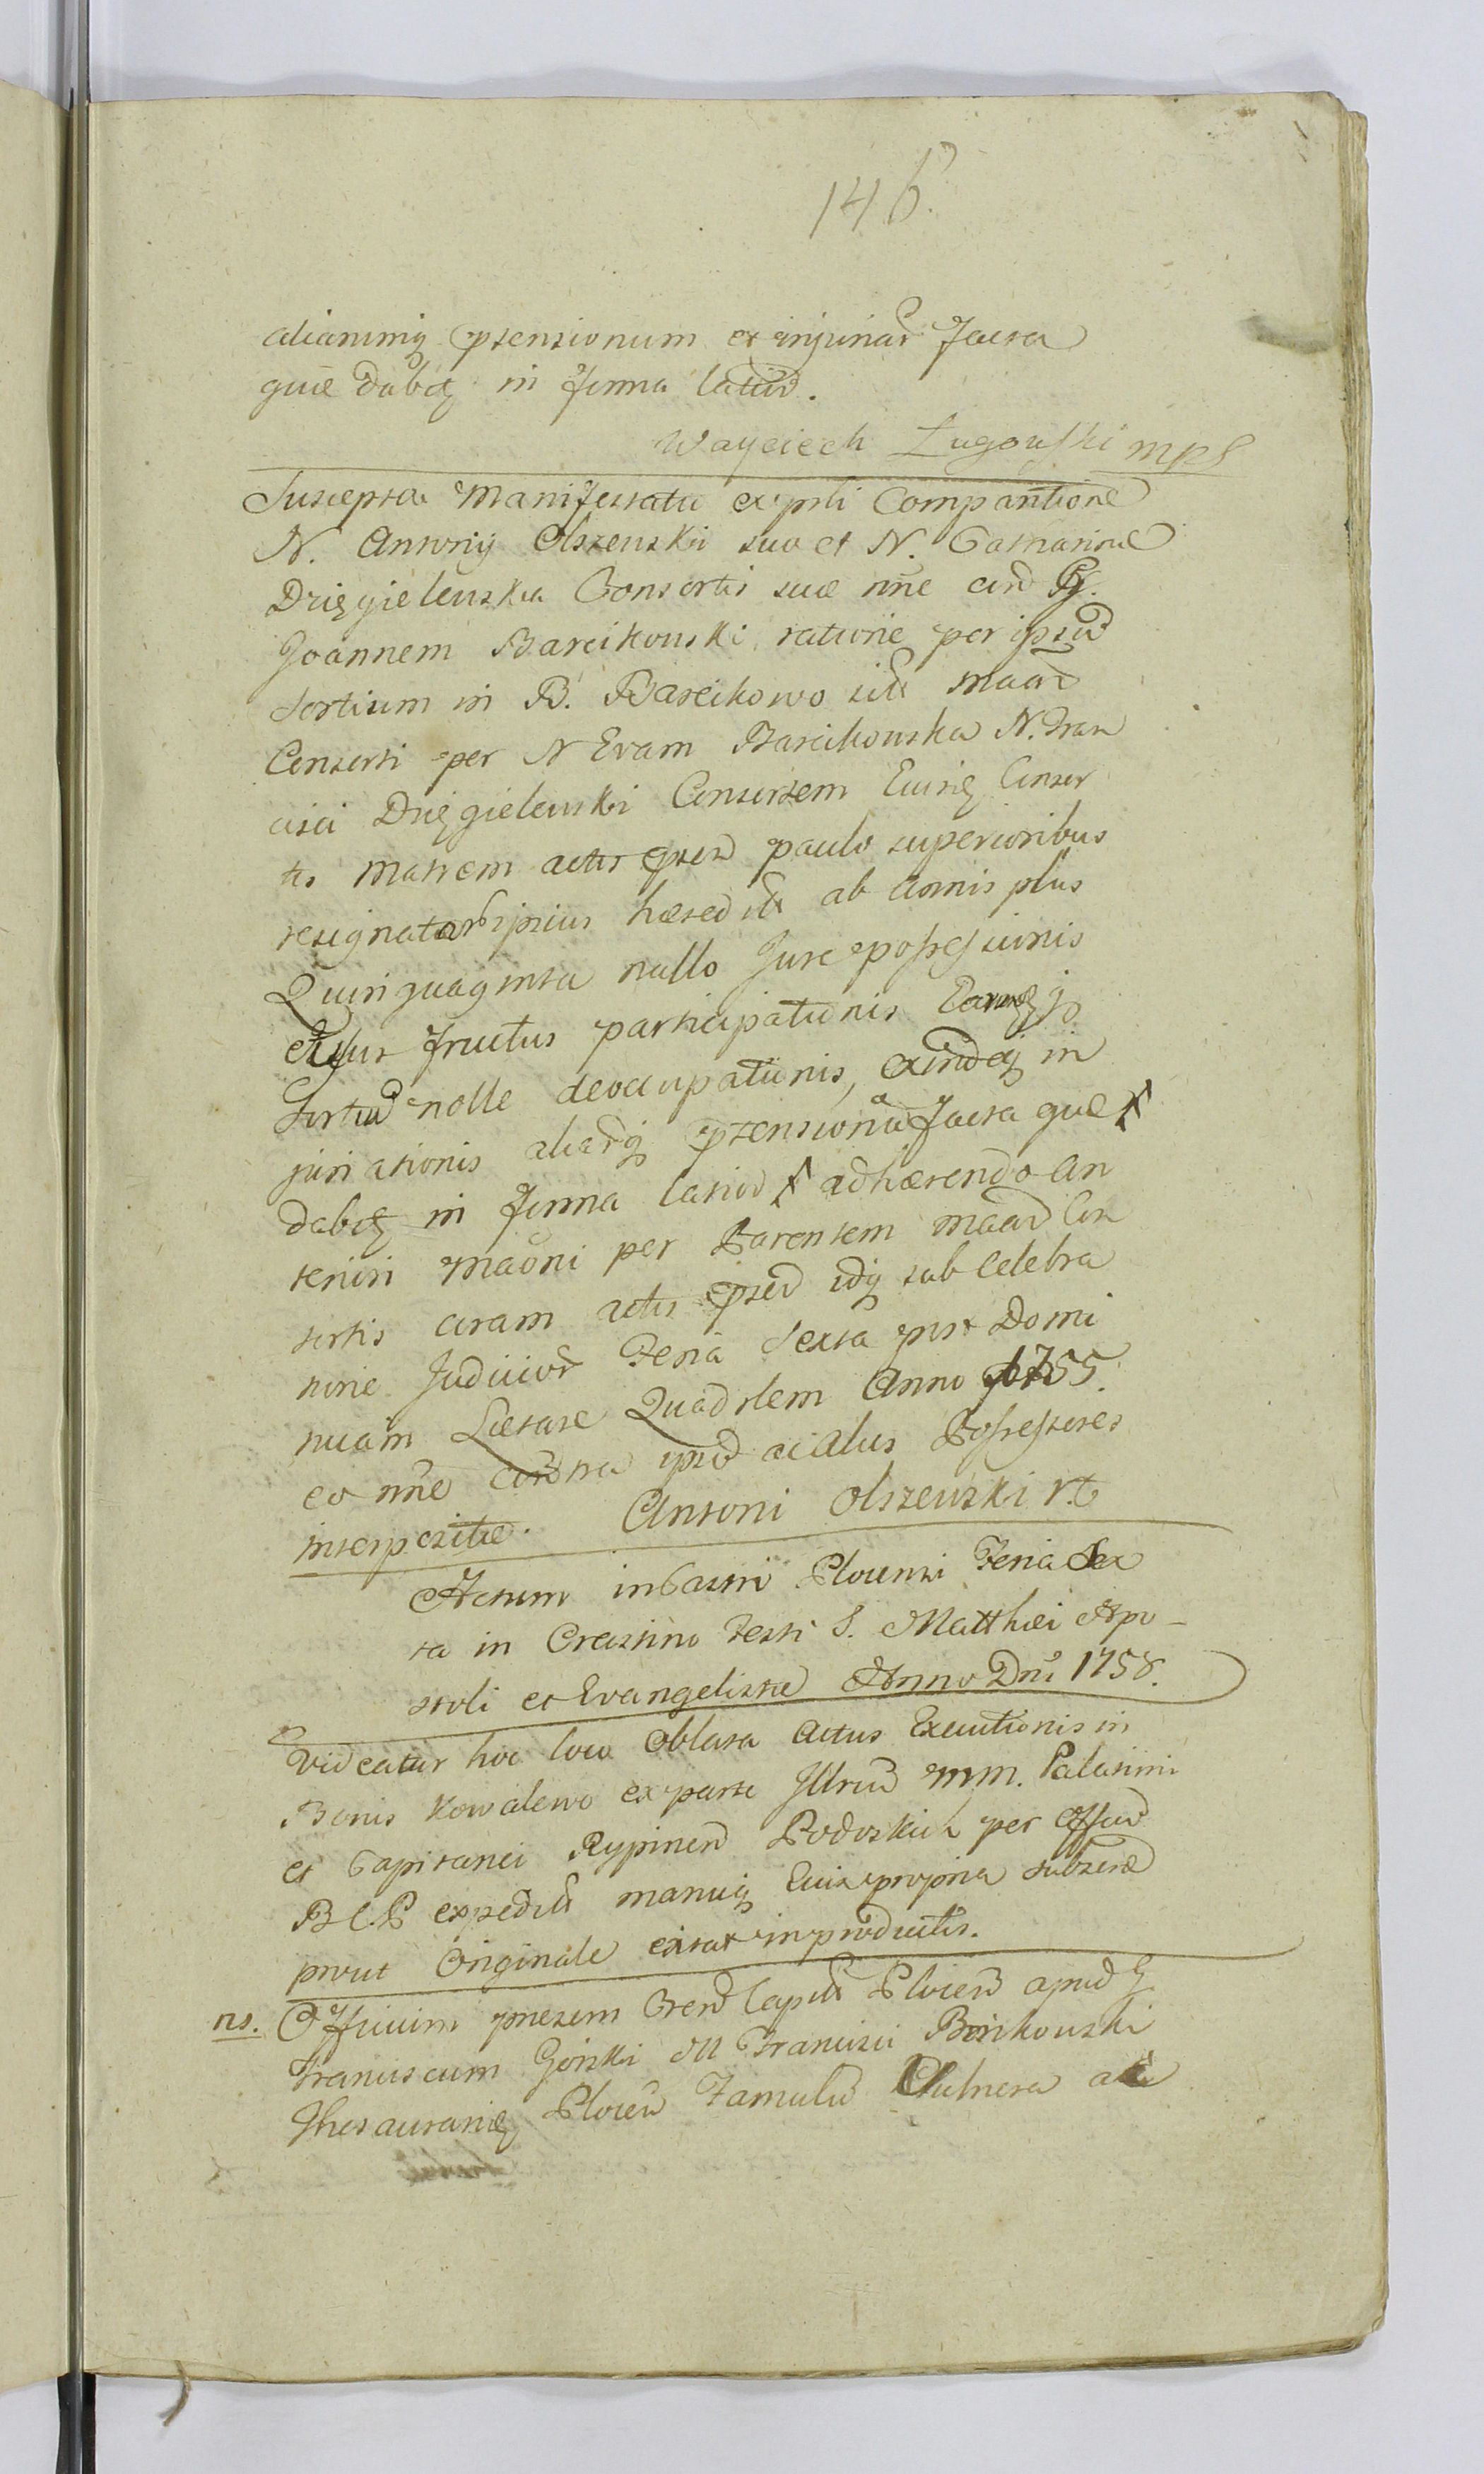 146.
aliarumq ptensionum et injuriar facta
quæ dabit in forma latiori.
Wayciech Ługowski mps
Suscepta Manifestatio ex psli Comparitione
N. Antonij Olszewski suo et N. Catharinæ
Dzięgielewska Consortis suæ nne cira G.
Joannem Barcikowski ratione per ipsum
sortium in B. Barcikowo sitt maae
Consorti per N Evam Barcikowska N. Fran
cisci Dzięgielewski Consortem Eiusq Consor
tis Matrem actis psen paulo superioribus
resignatar ipsius hæredit ab annis plus
Quinquaginta nullo Jure possessionis
et usus fructus participationis Earumq
Sortiu nolle deoccupationis, exindeq in
juriationis aliarq ptensionu facta quæ
dabit in forma latiori adhærendo An
teriori maoni per Parentem maae Con
sortis coram actis psen idq sub Celebra
tione Judicior Feria Sexta post Domi
nicam Lætare Quadrlem Anno 1755.
eo nne contra ipsu ac alios Possessores
interpositæ. Antoni Olszewski r.t
Actum in Castro Plocensi Feria Sex
ta in Crastino Festi S. Matthæi Apo-
stoli et Evangelistæ Anno Dni 1758.
Videatur hoc loco Oblata Actus Executionis in
Bonis Kowalewo ex parte Illriu MM. Palatini
et Capitanei Rypinen Podoskich per Offium
B C.P expedit manuq Eius propria subscræ
prout Originale extat in productis.
ns. Officium præsens Cren Capit Plocen apud G
Franciscum Gorski M Francisci Borkowski
Thesaurarij Plocen Famulu Vulnera ac